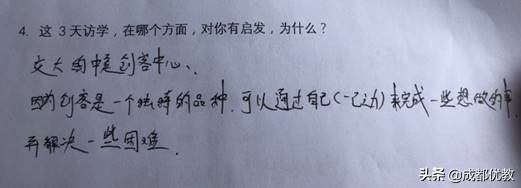 4. 这 3 天访学，在哪个方面，对你有启发，为什么？
交大的中意创客中心、
因为创客是一个独特的品种，可以通过自己(一己之力)来完成一些想做的事，
再解决一些困难．
头条 @成都优教